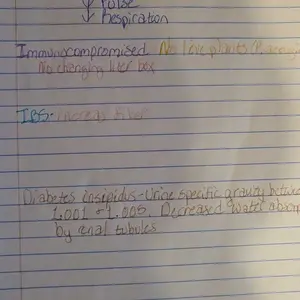 ↓ Pulse
↓ Respiration
Immunocompromised. No live plants
No changing liter box
IBS- increase fiber
Diabetes insipidus - Urine specific gravity between
1.001 1.005. Decreased water
by renal tubules